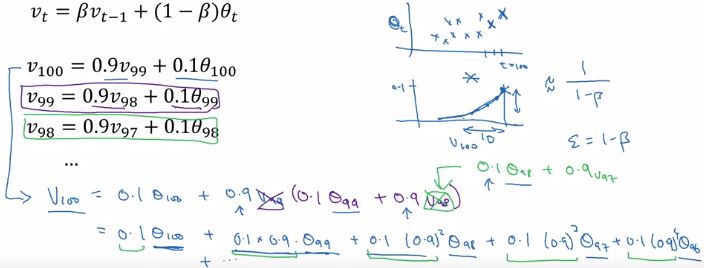 v_t = βv_{t-1} + (1 − β)θ_t
v_100 = 0.9v_99 + 0.1θ_100
v_99 = 0.9v_98 + 0.1θ_99
v_98 = 0.9v_97 + 0.1θ_98
...
θ_t
t=100
0.1
V_100
10
≈ 1/(1-β)
ε = 1-β
0.1 θ_98 + 0.9 v_97
V_100 = 0.1 θ_100 + 0.9 V_99 (0.1 θ_99 + 0.9 V_98)
= 0.1 θ_100 + 0.1 × 0.9 · θ_99 + 0.1 (0.9)² θ_98 + 0.1 (0.9)³ θ_97 + 0.1 (0.9)⁴ θ_96
+ ...